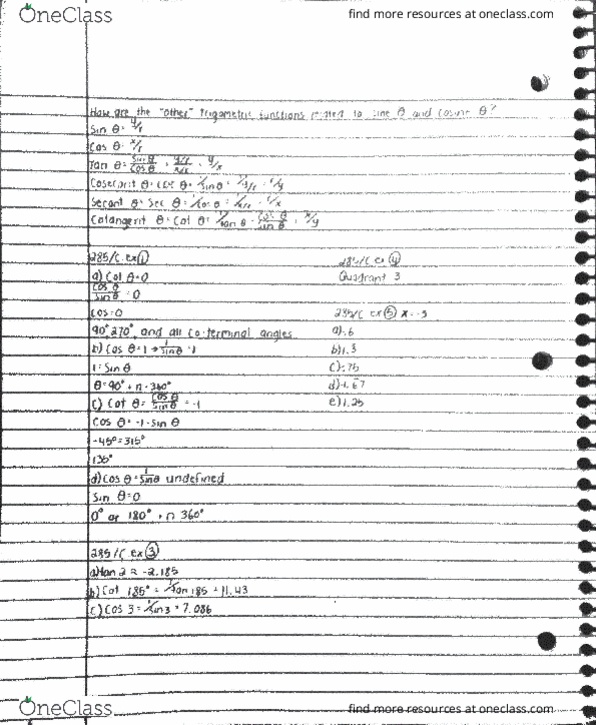 OneClass
find more resources at oneclass.com
How are the "other" trigametric functions related to sine θ and cosine θ?
Sin θ = y/r
Cos θ = x/r
Tan θ = sin θ/cos θ = y/r/x/r = y/x
Cosecant θ = csc θ = 1/sin θ = 1/y/r = r/y
Secant θ = Sec θ = 1/cos θ = 1/x/r = r/x
Cotangent θ = Cot θ = 1/tan θ = cos θ/sin θ = x/y
285/C.ex ①
a) Cot θ=0
cos θ/sin θ = 0
Cos=0
90°, 270°, and all co-terminal angles
b) Cos θ=1 → 1/sin θ = 1
1 = Sin θ
θ = 90° + n · 360°
c) Cot θ = cos θ/sin θ = -1
Cos θ = -1 · sin θ
-45° = 315°
135°
d) Cos θ = 1/sin θ undefined
Sin θ=0
0° or 180° + n 360°
285/C.ex ③
a) tan 2 ≈ -2.185
b) Cot 185° = 1/tan 185 = 11.43
c) Cos 3 = 1/sin 3 = 7.086
285/C ex ④
Quadrant 3
285/C ex ⑤
a) .6
b) 1.3
c) .75
d) 1.67
e) 1.25
OneClass
find more resources at oneclass.com